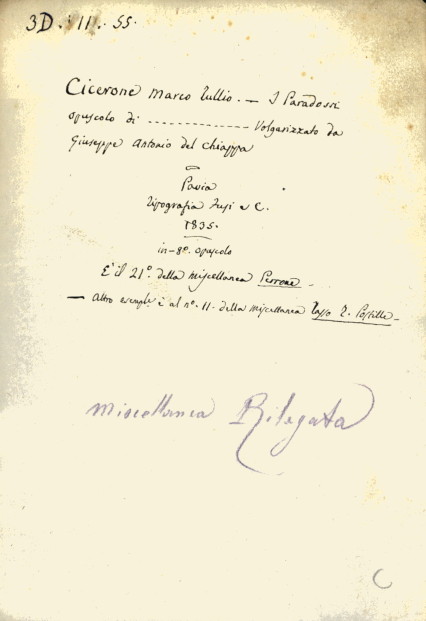 3D. 11. 55.
Cicerone Marco Tullio. — I Paradossi
opuscolo di ................ Volgarizzato da
Giuseppe Antonio del Chiappa
Pavia
Tipografia Fusi e C.
1835.
in-8º. opuscolo
È il 21º. della Miscellanea Perrone -
— Altro esempl. è al nº. 11. della Miscellanea Tasso T. Postille -
Miscellanea Rilegata
C